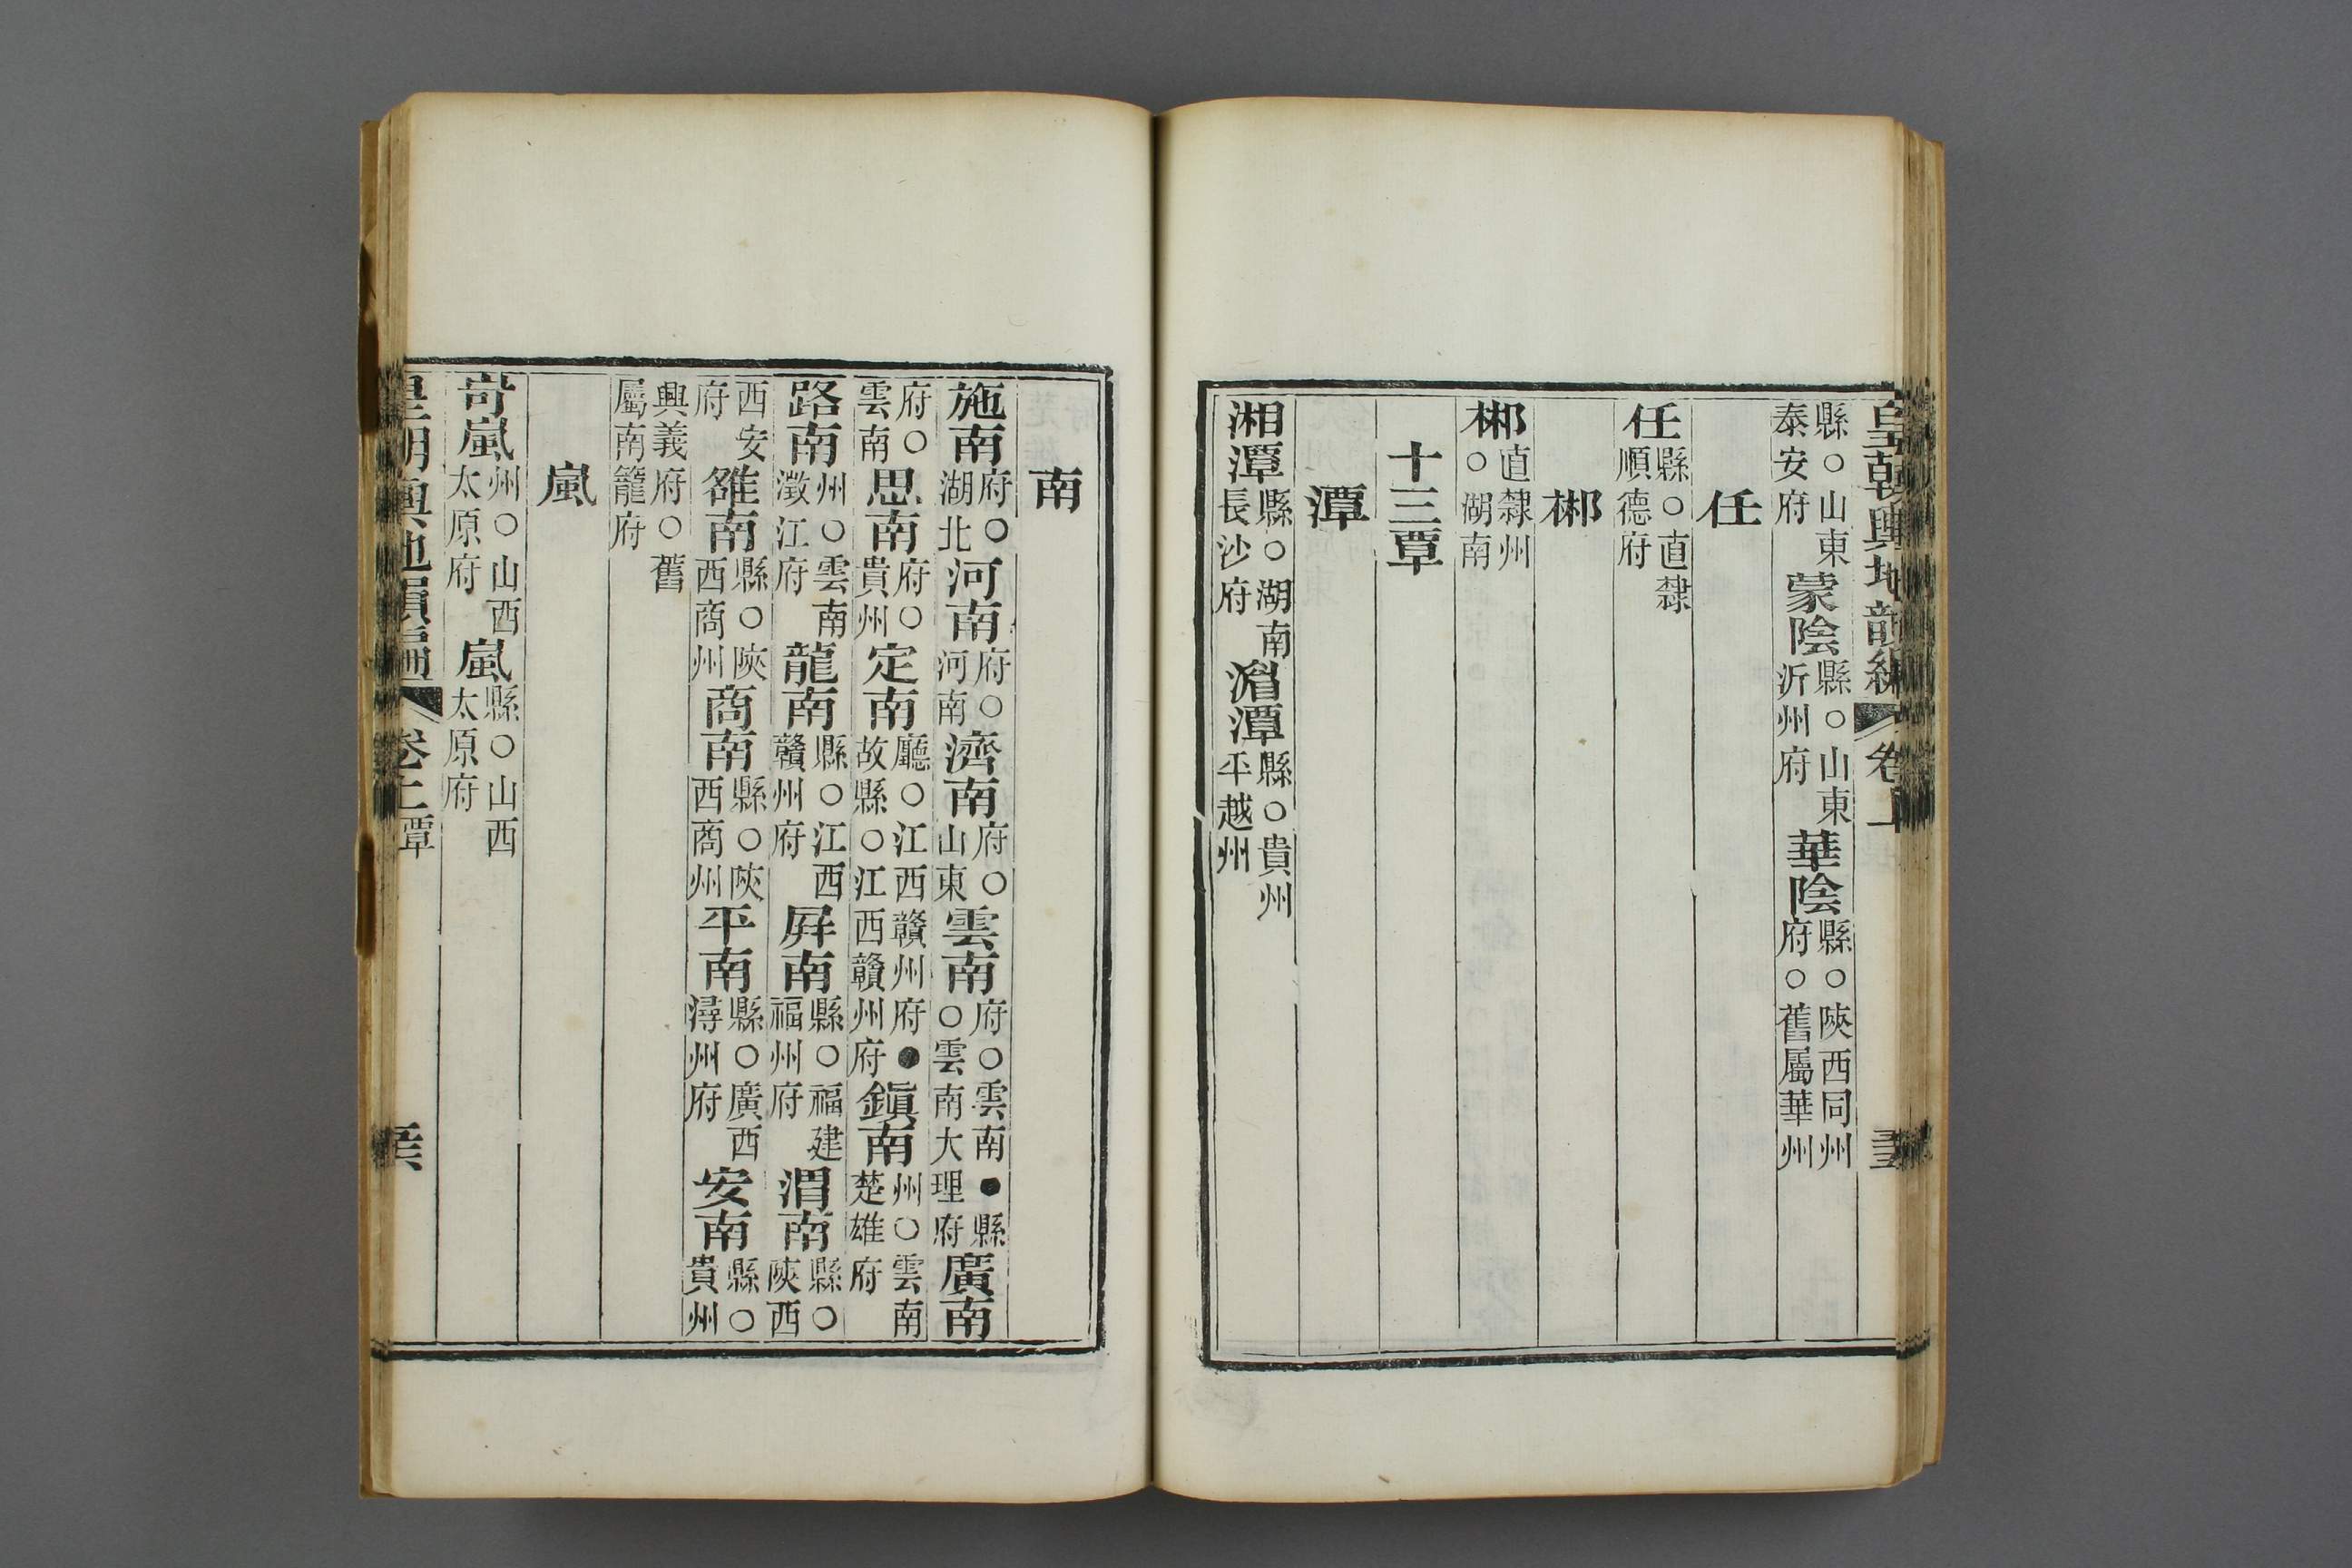 皇朝輿地韻編 卷上
縣○山東泰安府 蒙陰縣○山東沂州府 華陰縣○陝西同州府○舊屬華州
任
任縣○直隸順德府
郴
郴直隸州○湖南
十三覃
潭
湘潭縣○湖南長沙府 湄潭縣○貴州平越州
南
施南府○湖北 河南府○河南 濟南府○山東 雲南府○雲南●縣○雲南大理府 廣南
府○雲南 思南府○貴州 定南廳○江西贛州府●故縣○江西贛州府 鎮南州○雲南楚雄府
路南州○雲南澂江府 龍南縣○江西贛州府 屛南縣○福建福州府 渭南縣○陝西
西安府 雒南縣○陝西商州 商南縣○陝西商州 平南縣○廣西潯州府 安南縣○貴州
興義府○舊屬南籠府
嵐
岢嵐州○山西太原府 嵐縣○山西太原府
皇朝輿地韻編 卷上 覃